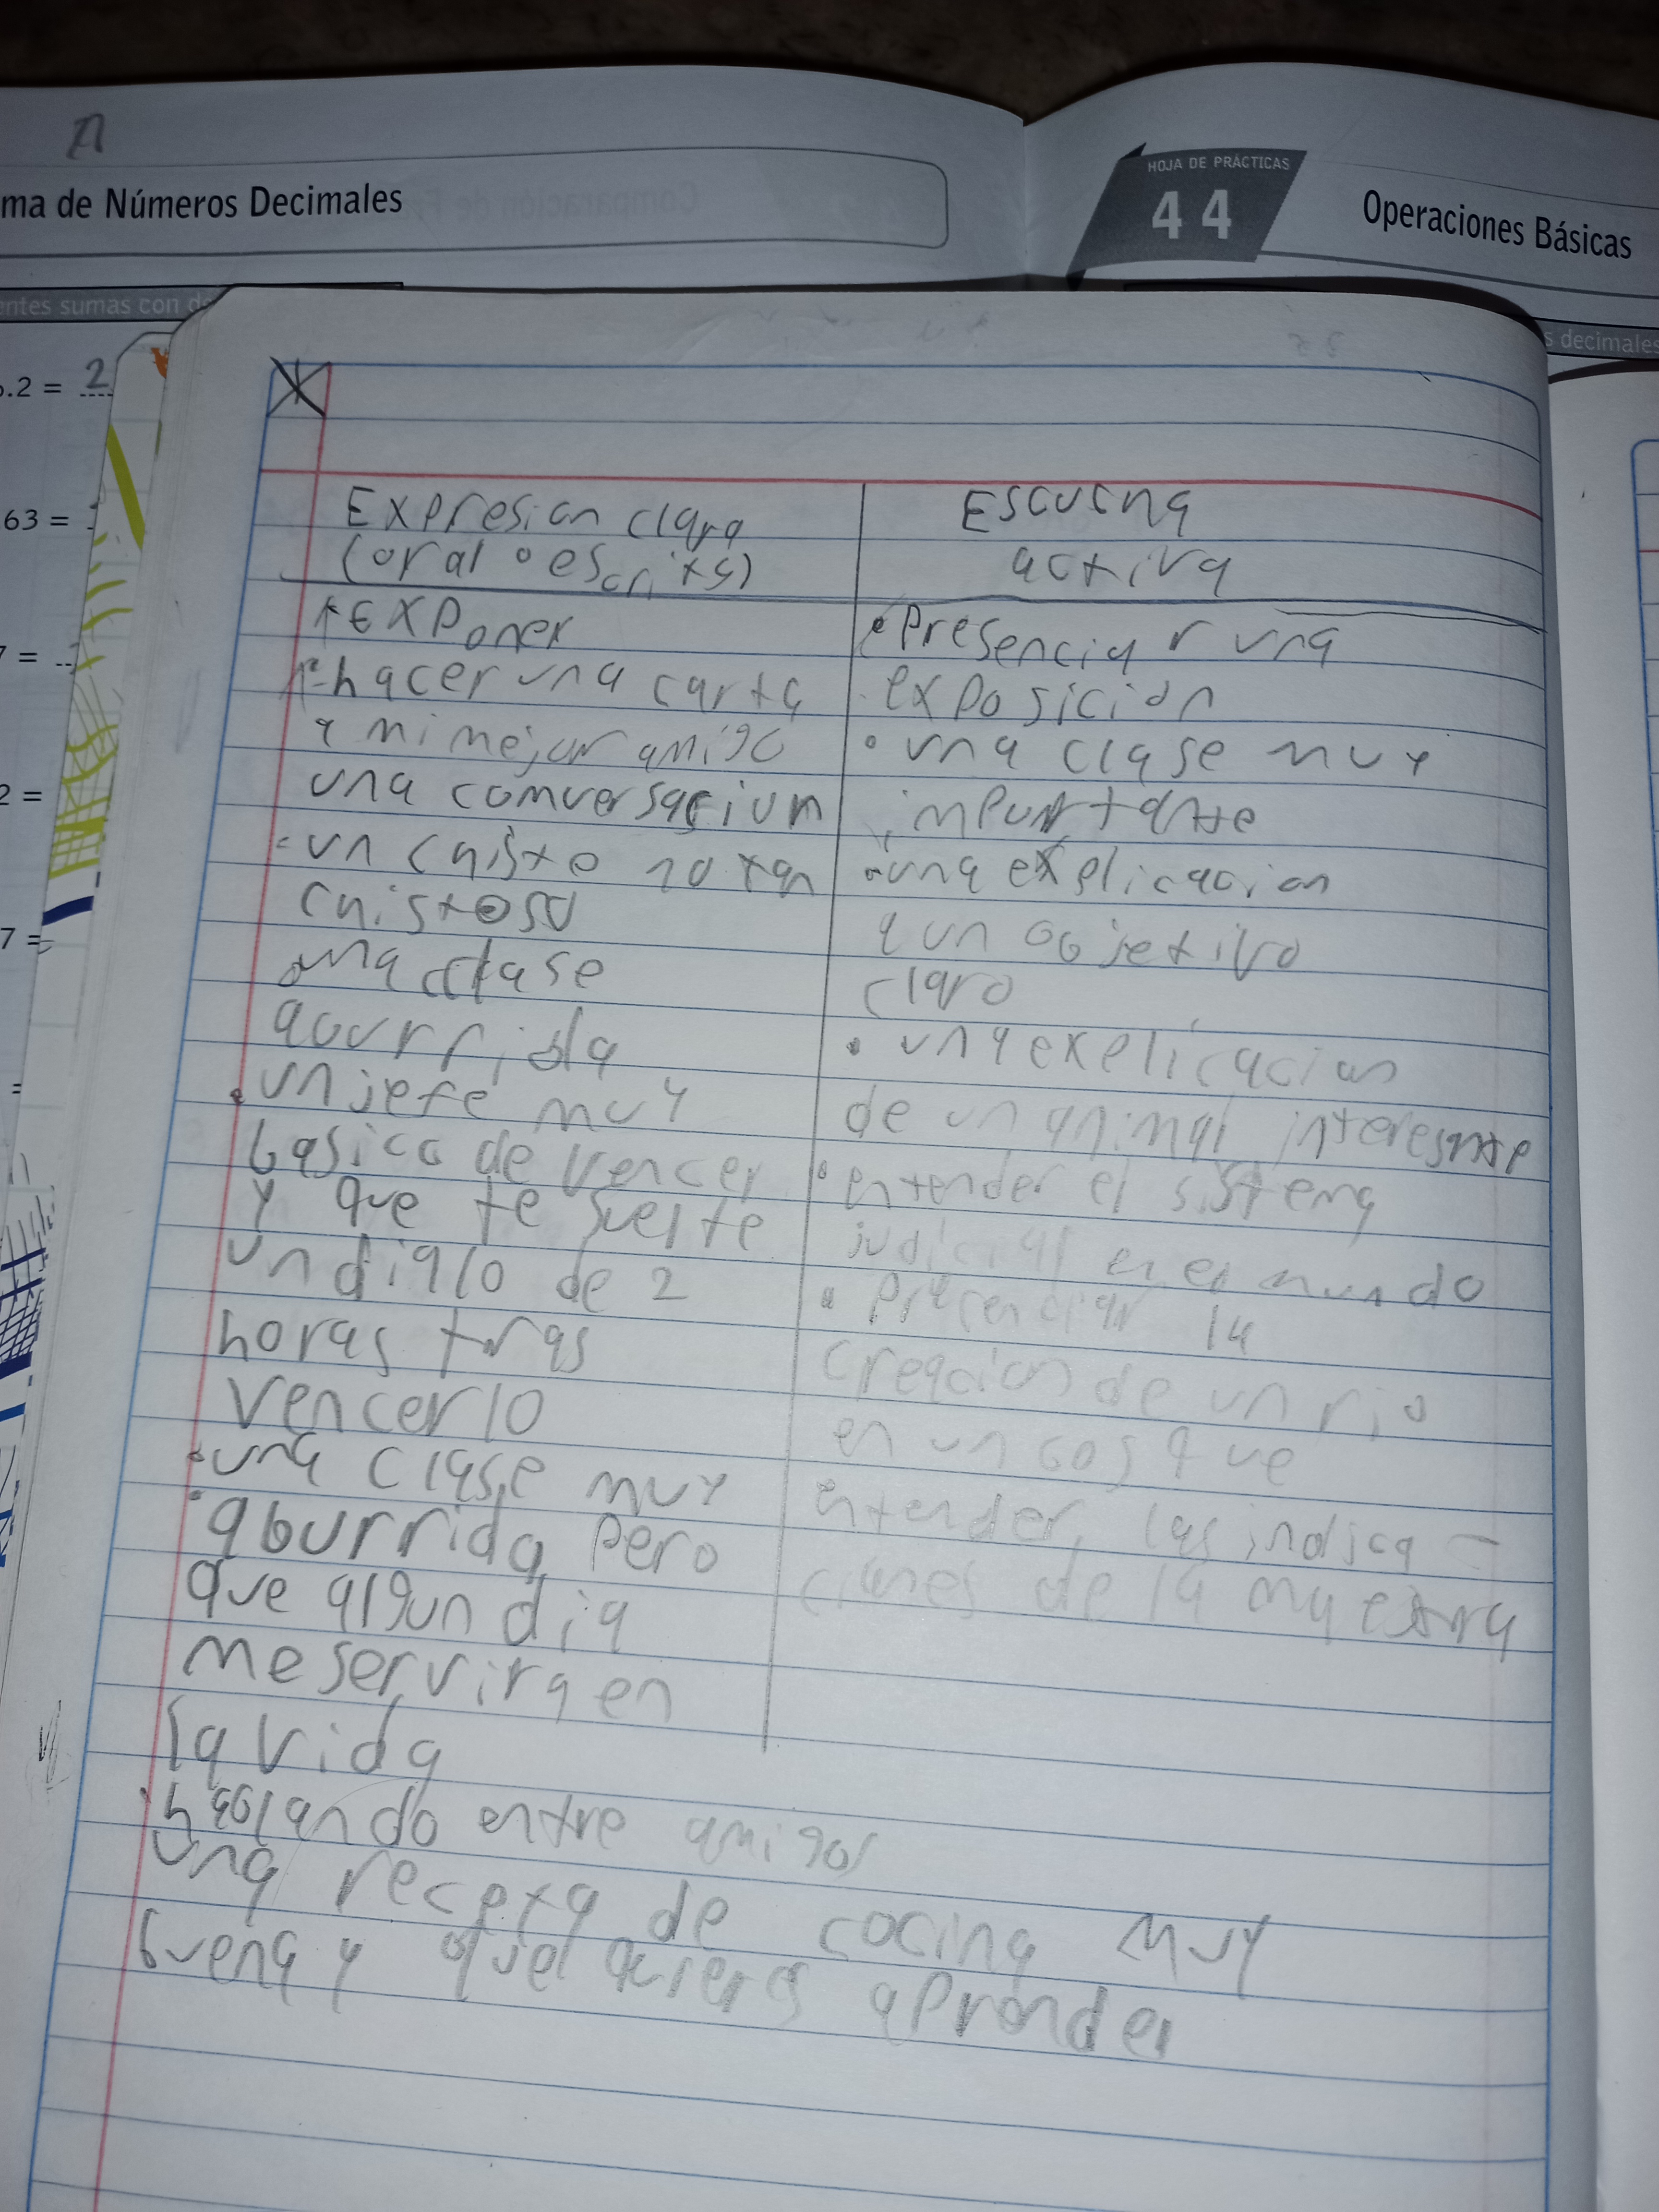 ma de Números Decimales
HOJA DE PRÁCTICAS
44
Operaciones Básicas
entes sumas con de
s decimales
.2 = 2
63 =
7 =
2 =
7 =
=
Expresion clara
(oral o escrita)
Exponer
hacer una carta
a mi mejor amigo
una comversacium
un chiste no tan
chistoso
una clase
aburrida
un jefe muy
basico de vencer
y que te suelte
un dialo de 2
horas tras
vencerlo
una clase muy
aburrida pero
que algun dia
me servira en
la vida
hablando entre amigos
una receta de cocina muy
buena y que quieres aprender
Escucha
activa
Presenciar una
exposicion
una clase muy
importante
una explicacion
a un objetivo
claro
una explicacion
de un animal interesante
entender el sistema
judicial en el mundo
Presenciar la
creacion de un rio
en un bosque
entender las indica-
ciones de la maestra